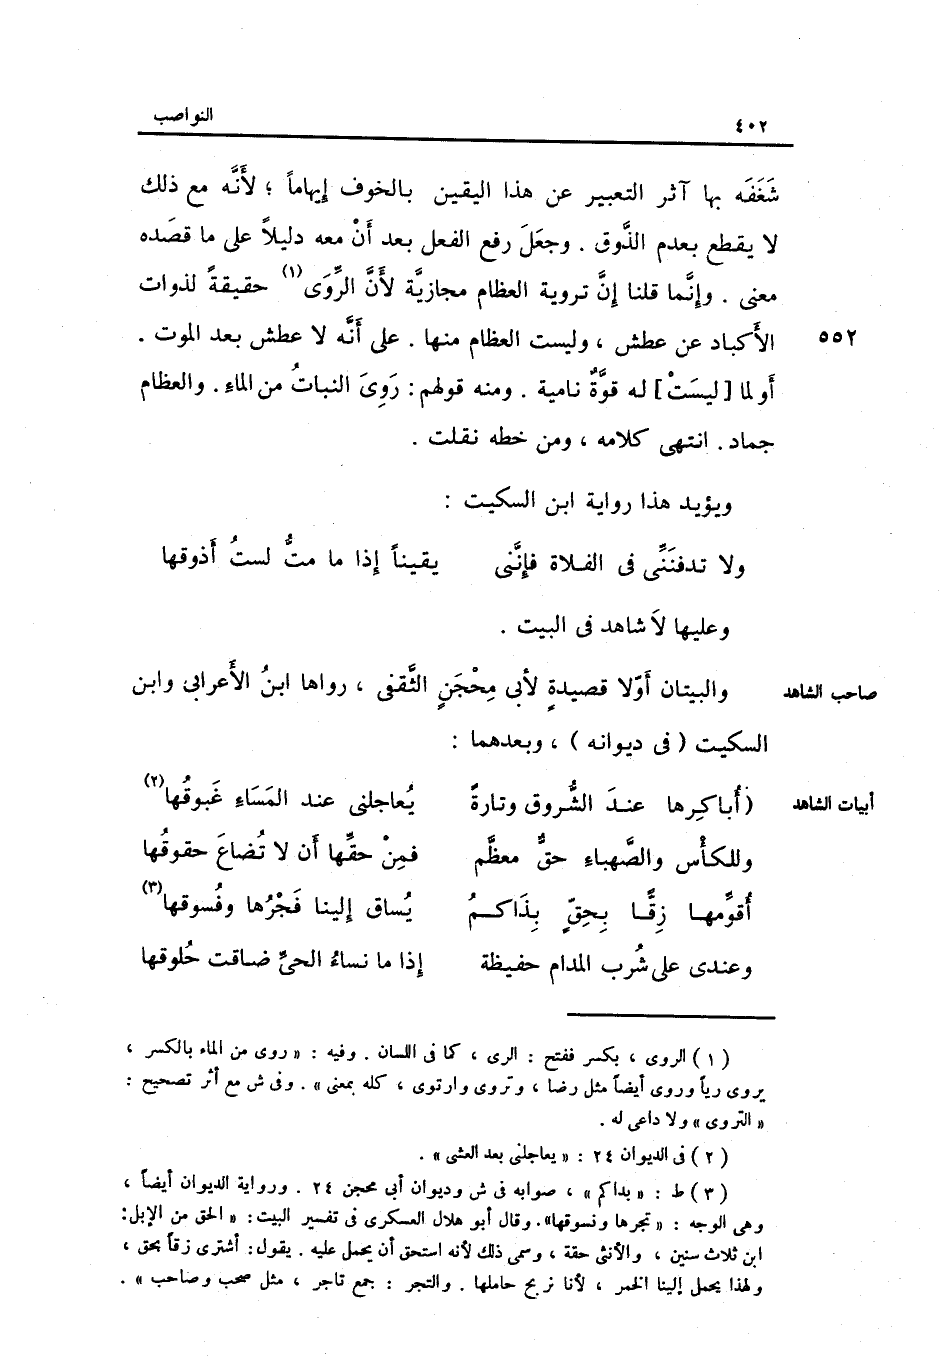 ٤٠٢ النواصب
شَغَفَه بها آثر التعبير عن هذا اليقين بالخوف إيهاماً ؛ لأَنَّه مع ذلك
لا يقطع بعدم الذَّوق . وجعَلَ رفع الفعل بعد أَنْ معه دليلاً على ما قصَده
معنى . وإنَّما قلنا إنَّ تروية العظام مجازيَّة لأَنَّ الرِّوَى (١) حقيقةً لذوات
الأَكباد عن عطش ، وليست العظام منها . على أَنَّه لا عطش بعد الموت .
٥٥٢
أَو لما [ ليسَتْ ] له قوَّةٌ نامية . ومنه قولهم : رَوِىَ النباتُ من الماءِ . والعظام
جماد . انتهى كلامه ، ومن خطه نقلت .
ويؤيد هذا رواية ابن السكيت :
ولا تدفنَنِّى فى الفلاة فإنَّنى يقيناً إذا ما متُّ لستُ أذوقها
وعليها لاَ شاهد فى البيت .
صاحب الشاهد
والبيتان أوّلا قصيدةٍ لأبى مِحْجَنٍ الثَّقفى ، رواها ابنُ الأَعرابى وابن
السكيت ( فى ديوانه ) ، وبعدهما :
أبيات الشاهد
( أُباكِرها عندَ الشُّروق وتارةً يُعاجلنى عند المَسَاءِ غَبوقُها (٢)
وللكأْس والصَّهباءِ حقٌّ معظَّم فمِنْ حقِّها أن لا تُضاعَ حقوقُها
أُقوِّمهـا زِقًّـا بِحِقّ بِذَاكـمُ يُساق إلينا فَجْرُها وفُسوقها (٣)
وعندى على شُرب المدام حفيظة إذا ما نساءُ الحىِّ ضاقت حُلوقها
( ١ ) الروى ، بكسر ففتح : الرى ، كما فى اللسان . وفيه : « روى من الماء بالكسر ،
يروى رياً وروى أيضاً مثل رضا ، وتروى وارتوى ، كله بمعنى » . وفى ش مع أثر تصحيح :
« التروى » ولا داعى له .
( ٢ ) فى الديوان ٢٤ : « يعاجلنى بعد العشى » .
( ٣ ) ط : « بداكم » ، صوابه فى ش وديوان أبى محجن ٢٤ . ورواية الديوان أيضاً ،
وهى الوجه : « تجرها ونسوقها » . وقال أبو هلال العسكرى فى تفسير البيت : « الحق من الإبل :
ابن ثلاث سنين ، والأنثى حقة ، وسمى ذلك لأنه استحق أن يحمل عليه . يقول : أشترى زقاً بحق ،
ولهذا يحمل إلينا الخمر ، لأنا نربح حاملها . والتجر : جمع تاجر ، مثل صحب وصاحب » .